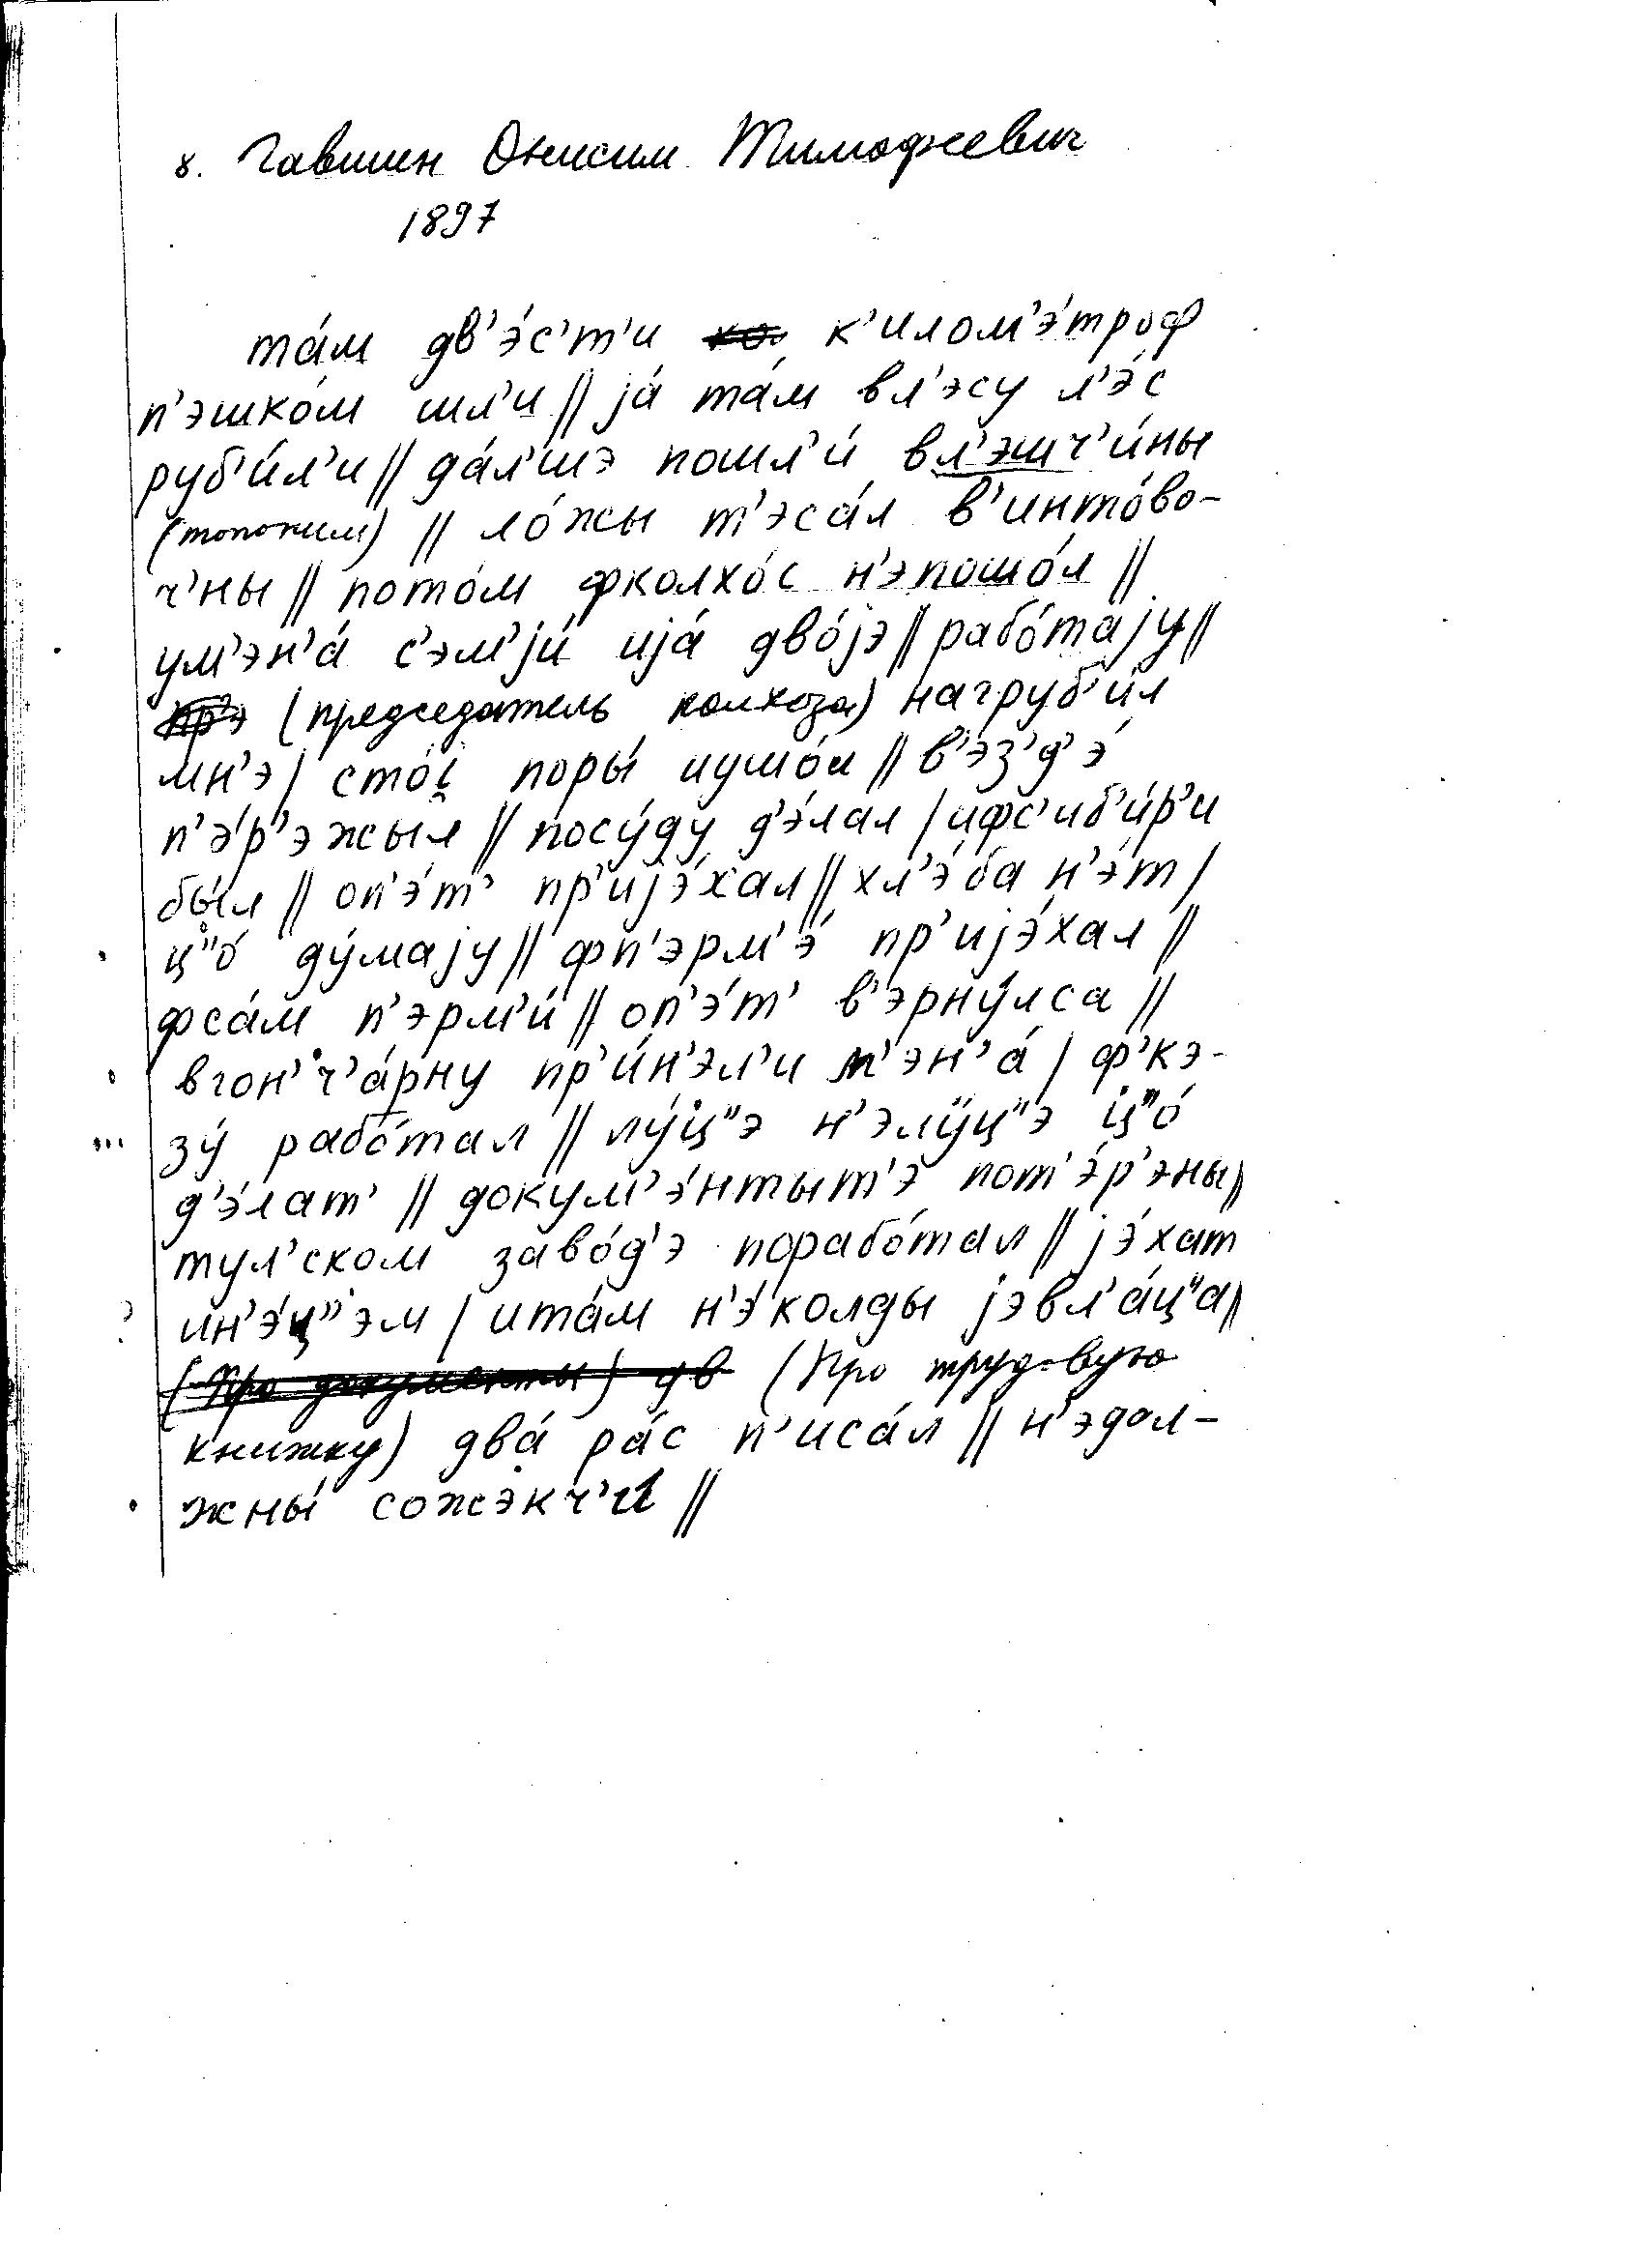 8. Гавшин Онисим Тимофеевич
1897
та́м дв'э́с'т'и к'илом'э́троф
п'эшко́м шл'и || jа́ та́м вл'эсу л'э́с
руб'и́л'и || да́л'шэ пошл'и́ вл'эшч'и́ны
(топоним) || ло́жы т'эса́л в'инто́во-
ч'ны || пото́м фколхо́с н'эпошо́л ||
ум'эн'а́ с'эм'jи́ иjа́ дво́jэ || рабо́таjу ||
(председатель колхоза) нагруб'и́л
мн'э | сто́i̯ поры́ иушо́л || в'эз'д'э́
п'э́р'эжыл || посу́ду д'э́лал | ифс'иб'и́р'и
бы́л || оп'э́т' пр'иjэ́хал || хл'э́ба н'э́т |
ц"о́ ду́маjу || фп'эрм'э́ пр'иjэ́хал ||
фса́м п'эрм'и́ || оп'э́т' в'эрну́лса ||
вгон'ч'а́рну пр'и́н'эл'и м'эн'а́ | ф'кэ-
зу́ рабо́тал || лу́ц"э н'элу́ц"э ц"о́
д'э́лат' || докум'э́нтыт'э пот'э́р'эны ||
тул'ском заво́д'э порабо́тал || jэ́хат
ин'э́ц"эм | ита́м н'э́колды jэвл'а́ц"а ||
(Про трудовую
книжку) два́ ра́с п'иса́л || н'эдол-
жны́ сожэкч'и́ ||